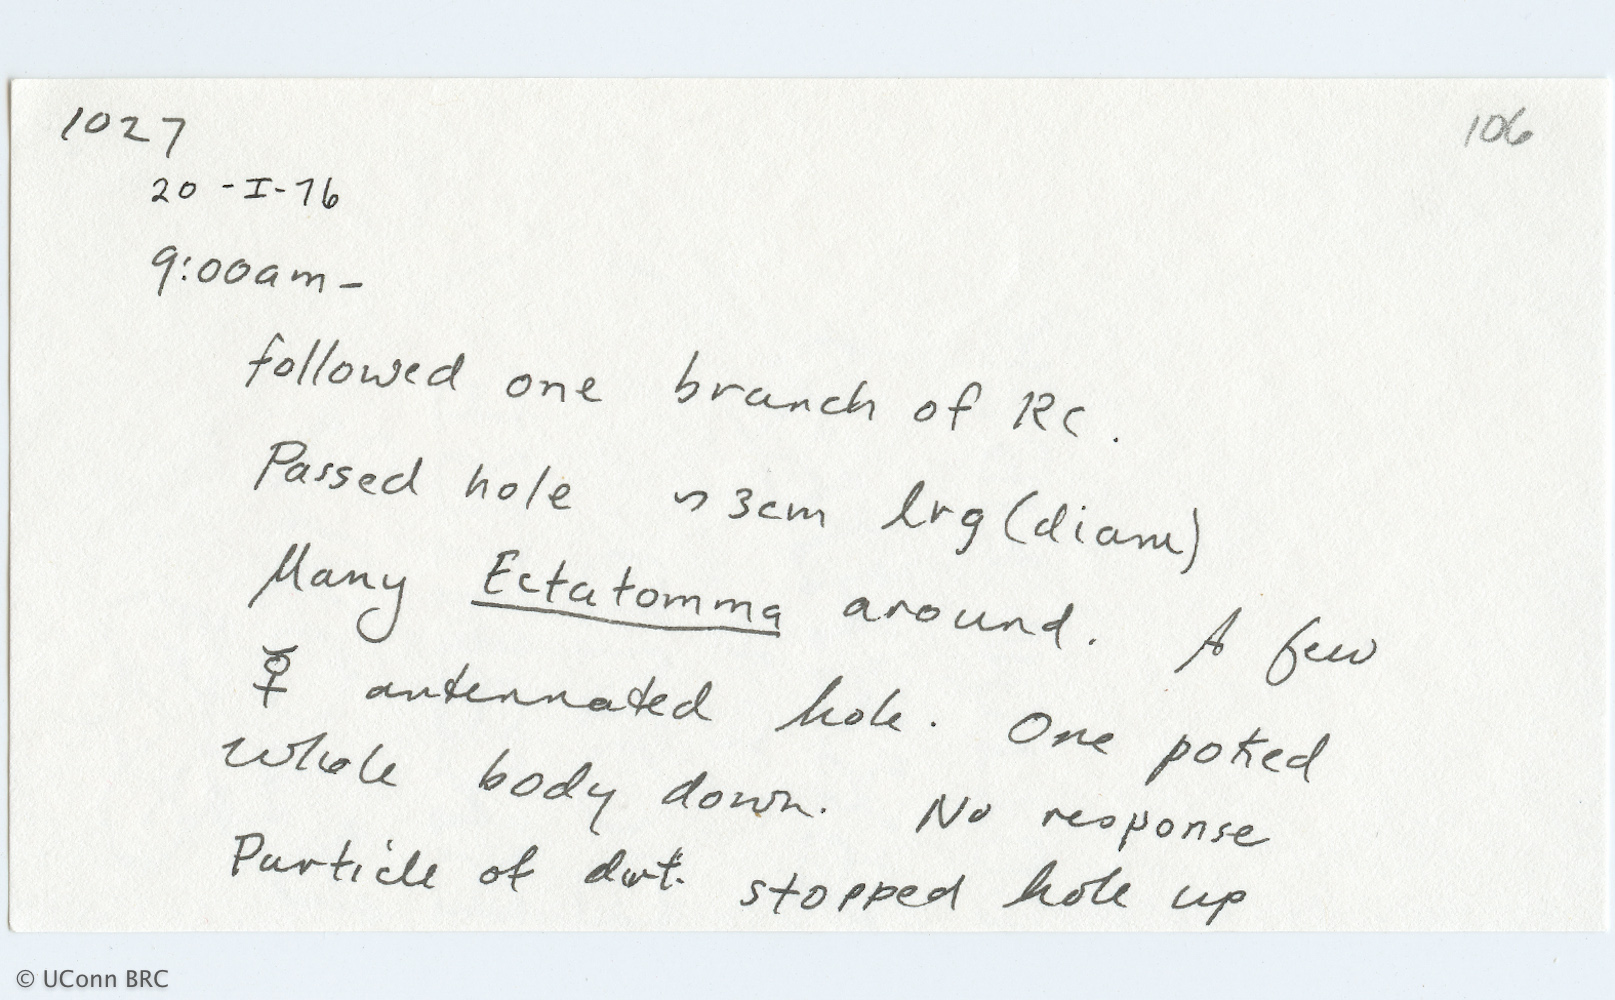 1027
106
20-I-76
9:00am-
followed one branch of RC.
Passed hole ~3cm lrg (diam)
Many Ectatomma around. A few
☿ antennated hole. One poked
whole body down. No response
Particle of dirt stopped hole up
© UConn BRC